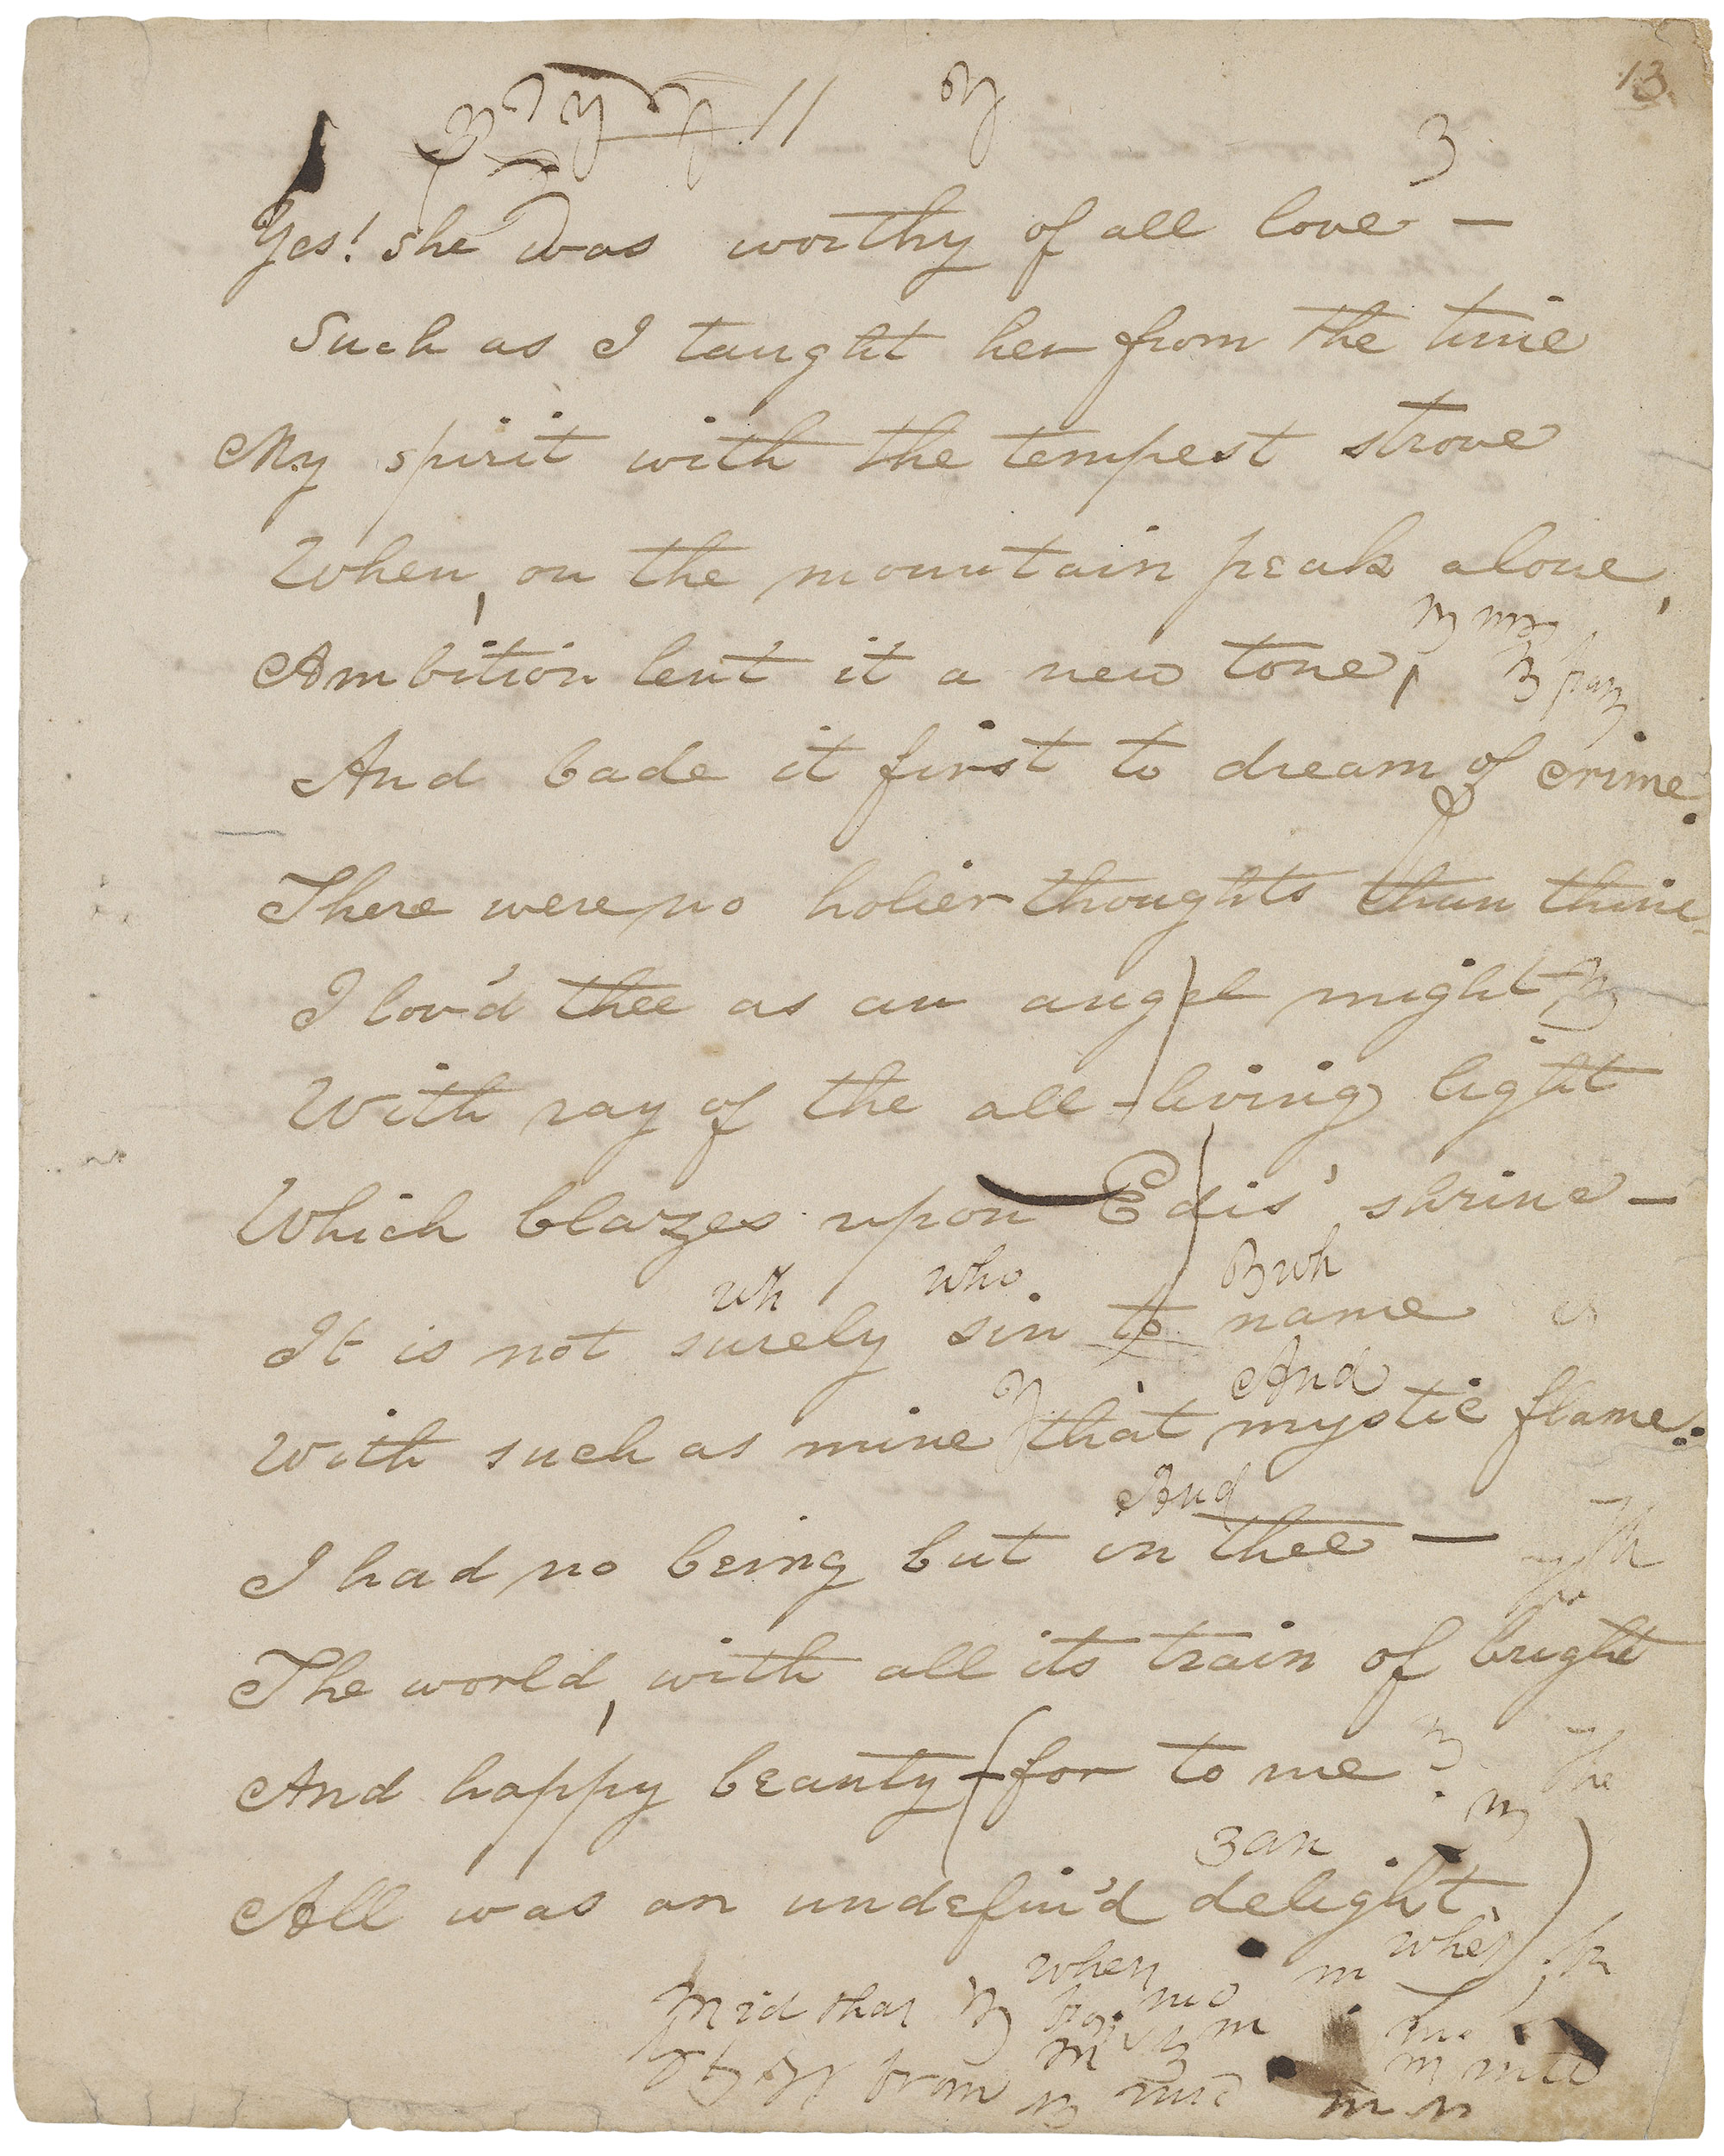 13.
3
Yes! she was worthy of all love —
Such as I taught her from the time
My spirit with the tempest strove
When, on the mountain peak alone,
Ambition lent it a new tone,
And bade it first to dream of crime.
There were no holier thoughts than thine
I lov'd thee as an angel might
With ray of the all-living light
Which blazes upon Edis' shrine —
wh who Bwh
It is not surely sin to name
And
With such as mine that mystic flame:
And
I had no being but in thee —
The world, with all its train of bright
And happy beauty (for to me
The
3 an
All was an undefin'd delight)
when when
Mid that
from